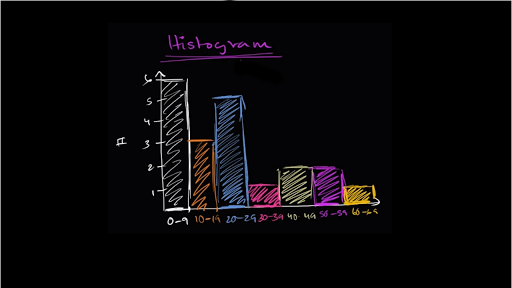 Histogram
6
5
4
3
#
2
1
0-9 10-19 20-29 30-39 40-49 50-59 60-69